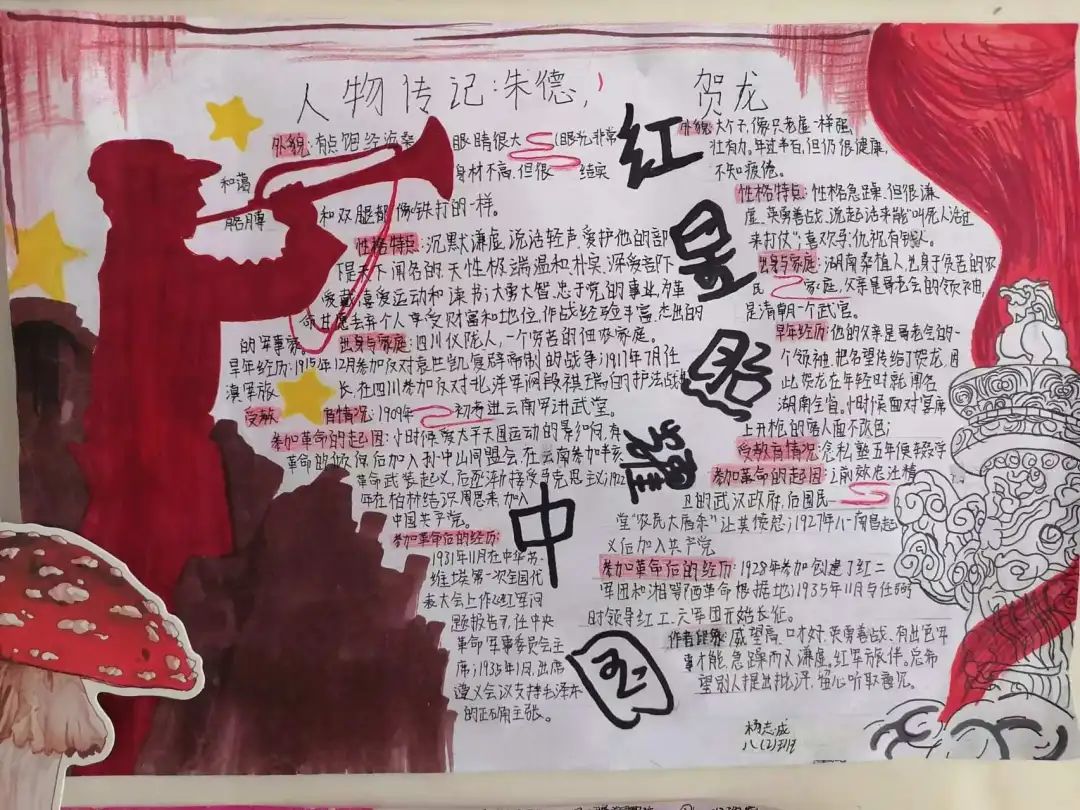 人物传记:朱德,
贺龙
红星照耀中国
外貌:有点饱经沧桑
和蔼
眼睛很大(眼光非常
身材不高,但很结实
胳膊
和双腿都像铁打的一样。
性格特点:沉默谦虚,说话轻声,爱护他的部
下是天下闻名的,天性极端温和,朴实,深爱部下
爱戴;喜爱运动和读书;大勇大智,忠于党的事业,为革
命甘愿丢弃个人享受财富和地位,作战经验丰富,杰出的
的军事家。
出身与家庭:四川仪陇人,一个穷苦的佃农家庭。
早年经历:1915年12月参加反对袁世凯复辟帝制的战争;1917年7月任
滇军旅长,在四川参加反对北洋军阀段祺瑞的护法战
受教育情况:1909年初考进云南军讲武堂。
参加革命的起因:小时候受太平天国运动的影响,有
革命的倾向,后加入孙中山同盟会,在云南参加辛亥
革命武装起义,后逐渐接受马克思主义;192
年在柏林结识周恩来,加入
中国共产党。
参加革命后的经历:
1931年11月在中华苏
维埃第一次全国代
表大会上作《红军问
题报告》,任中央
革命军事委员会主
席;1935年1月,出席
遵义会议支持毛泽东
的正确主张。
外貌:大个子,像只老虎一样强
壮有力。年过半百,但仍很健康,
不知疲倦。
性格特点:性格急躁,但很谦
虚,英勇善战,说起话来能"叫死人活过
来打仗";喜欢马;仇视有钱人。
出身与家庭:湖南桑植人,出身于贫苦的农
民家庭,父亲是哥老会的领袖,
是清朝一个武官。
早年经历:他的父亲是哥老会的一
个领袖,把名望传给了贺龙,因
此贺龙在年轻时就闻名
湖南全省。小时候面对宴席
上开枪的客人面不改色;
受教育情况:念私塾五年便辍学
参加革命的起因:之前效忠汪精
卫的武汉政府,后国民
党"农民大屠杀"让其愤怒;1927年八一南昌起
义后加入共产党
参加革命后的经历:1928年参加创建了红二
军团和湘鄂西革命根据地;1935年11月与任弼
时领导红二、六军团开始长征。
作者印象:威望高,口才好,英勇善战,有出色军
事才能,急躁而又谦虚。红军旅伴。总希
望别人提出批评,留心听取意见。
杨志成
八(2)班